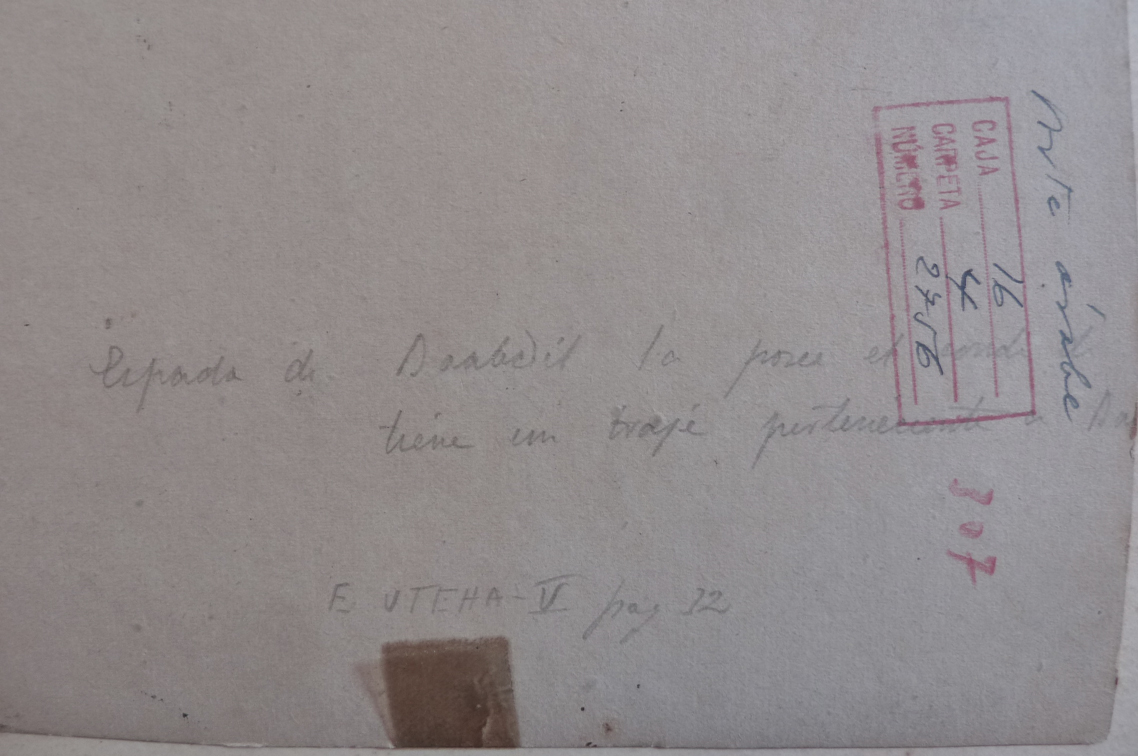 Espada de Boabdil la posee el
tiene un traje perteneciente a
E UTEHA-V pag 32
Arte árabe
CAJA 16
CARPETA 4
NÚMERO 2756
307